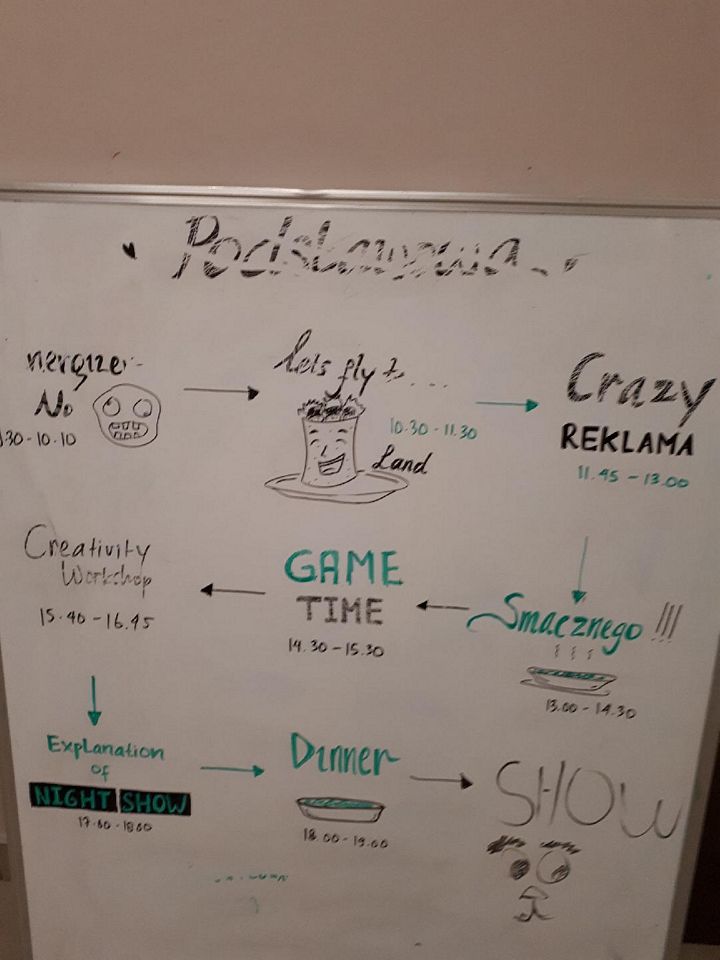 Podstawowa
nergizer
No
30-10.10
Lets fly to....
10.30-11.30
Land
Crazy
REKLAMA
11.45-13.00
Smacznego!!!
13.00-14.30
GAME
TIME
14.30-15.30
Creativity
Workshop
15.40-16.45
Explanation
of
NIGHT SHOW
17.00-18.00
Dinner
18.00-19.00
SHOW